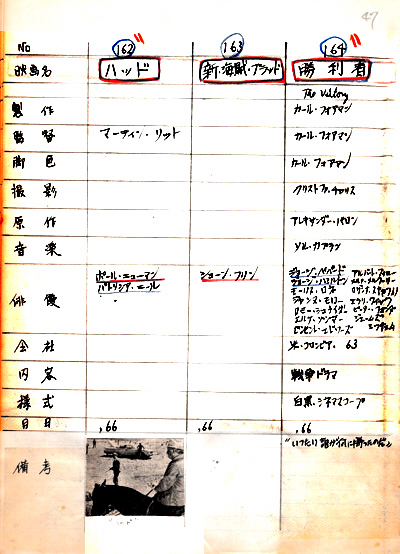 47
No 162 163 164
映画名 ハッド 新・海賊ブラッド 勝利者
The Victory
製作 カール・フォアマン
監督 マーティン・リット カール・フォアマン
脚色 カール・フォアマン
撮影 クリストファ・チャリス
原作 アレキサンダー・バロン
音楽 ソル・カプラン
俳優 ポール・ニューマン ショーン・フリン ジョージ・ペパード アルバート・フィニー
パトリシア・ニール ジョージ・ハミルトン メルナ・メルクーリー
モーリス・ロネ ロザンナ・スキャフィノ
ジャンヌ・モロー エリ・ウォラック
ロミー・シュナイダー ピーター・フォンダ
エルケ・ソマー ジェームズ
ビンセント・エドワーズ
会社 米・コロンビア. 63
内容 戦争ドラマ
様式 白黒・シネマスコープ
月日 ,66 ,66 ,66
備考